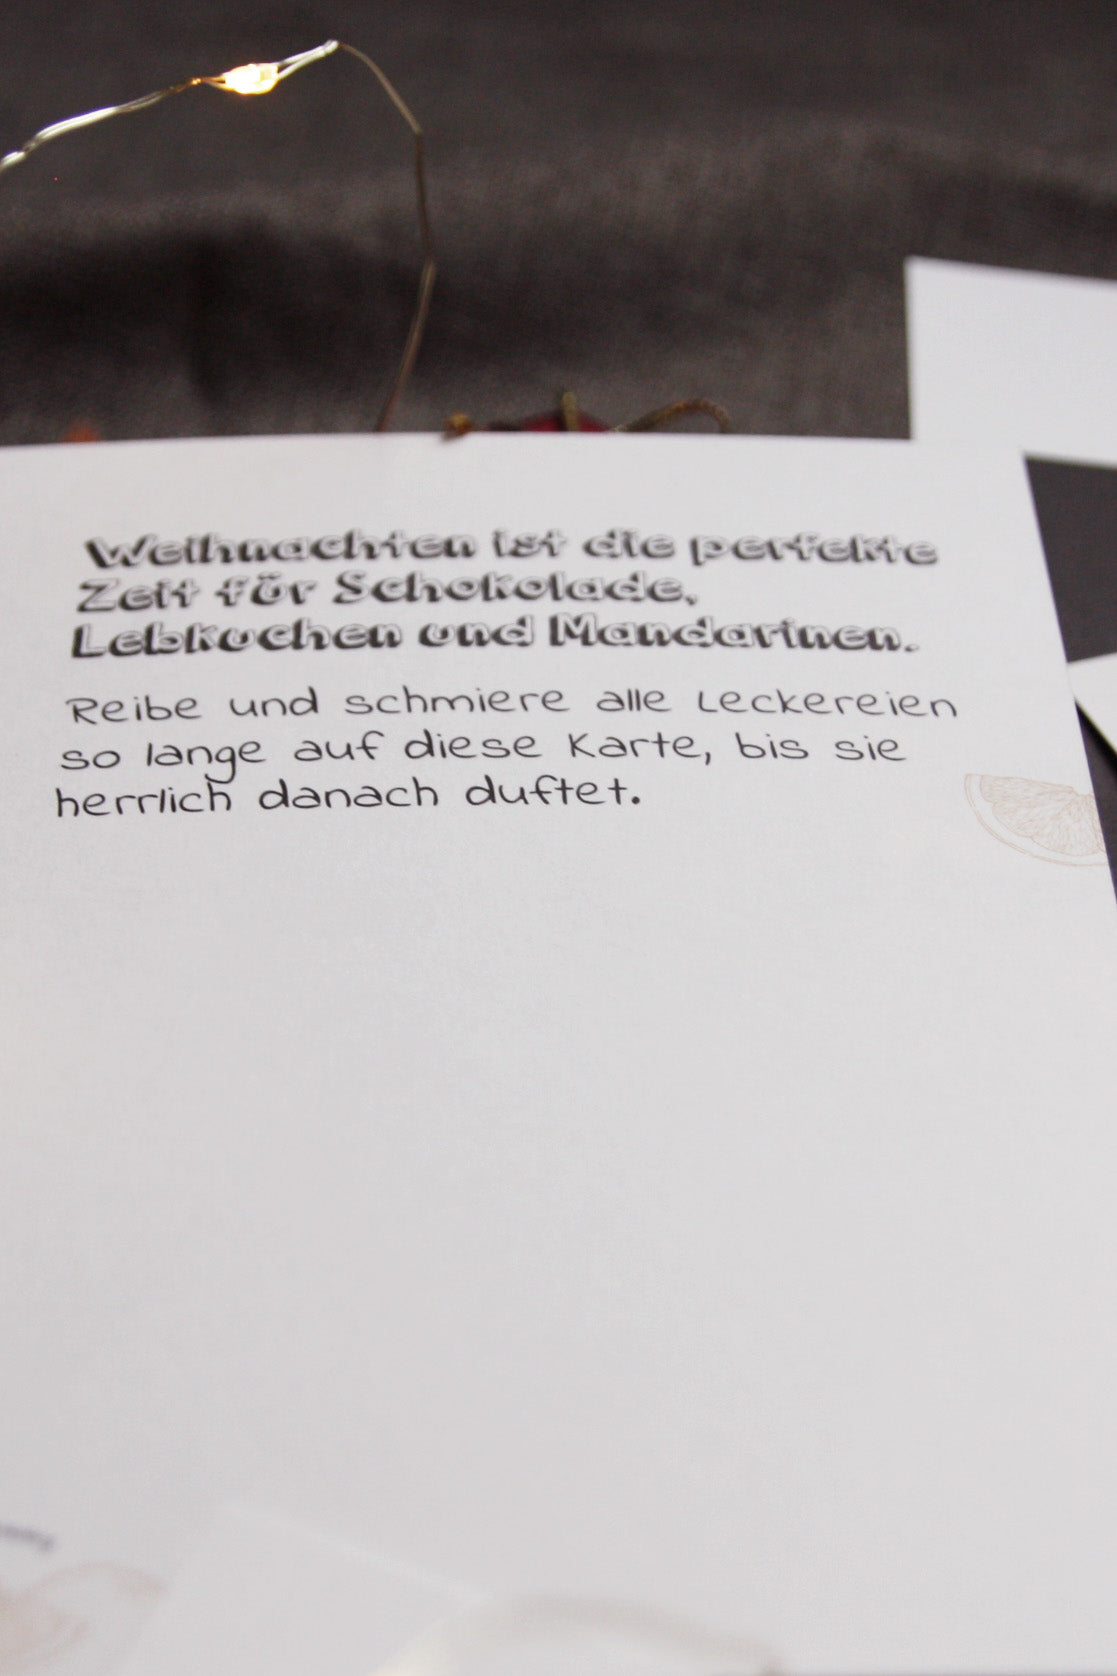 Weihnachten ist die perfekte
Zeit für Schokolade,
Lebkuchen und Mandarinen.
Reibe und schmiere alle Leckereien
so lange auf diese Karte, bis sie
herrlich danach duftet.